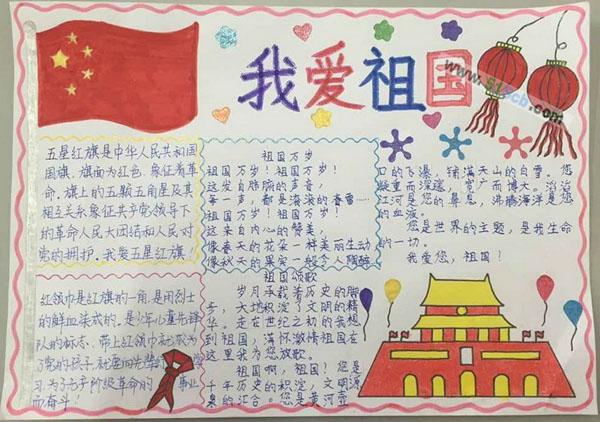 我爱祖国
www.513cb.com
五星红旗是中华人民共和国
国旗,旗面为红色,象征着革
命,旗上的五颗五角星及其
相互关系象征共产党领导下
的革命人民大团结和人民对
党的拥护。我爱五星红旗!
红领巾是红旗的一角,是用烈士
的鲜血染成的。是少年儿童先锋
队的标志,带上红领巾就成为
了党的孩子,就要向先辈们学
习,为了无产阶级革命的事业
而奋斗!
祖国万岁
祖国万岁!祖国万岁!
这发自肺腑的声音,
每一声,都是滚滚的春雷
祖国万岁!祖国万岁!
这来自内心的赞美,
像春天的花朵一样美丽生动
像秋天的果实一般令人陶醉
祖国颂歌
岁月承载着历史的脚
步,大地积淀了文明的精
华。走在世纪之初的我想
到祖国,满怀激情祖国在
这里我为您放歌。
祖国啊,祖国!您是
千年历史的积淀,文明源
泉的汇合。您是黄河壶
口的飞瀑,铺满天山的白雪。您
凝重而深邃,宽广而博大。滔滔
江河是您的鼻息,沸腾海洋是您
的血液。
您是世界的主题,是我生命
的一切。
我爱您,祖国!